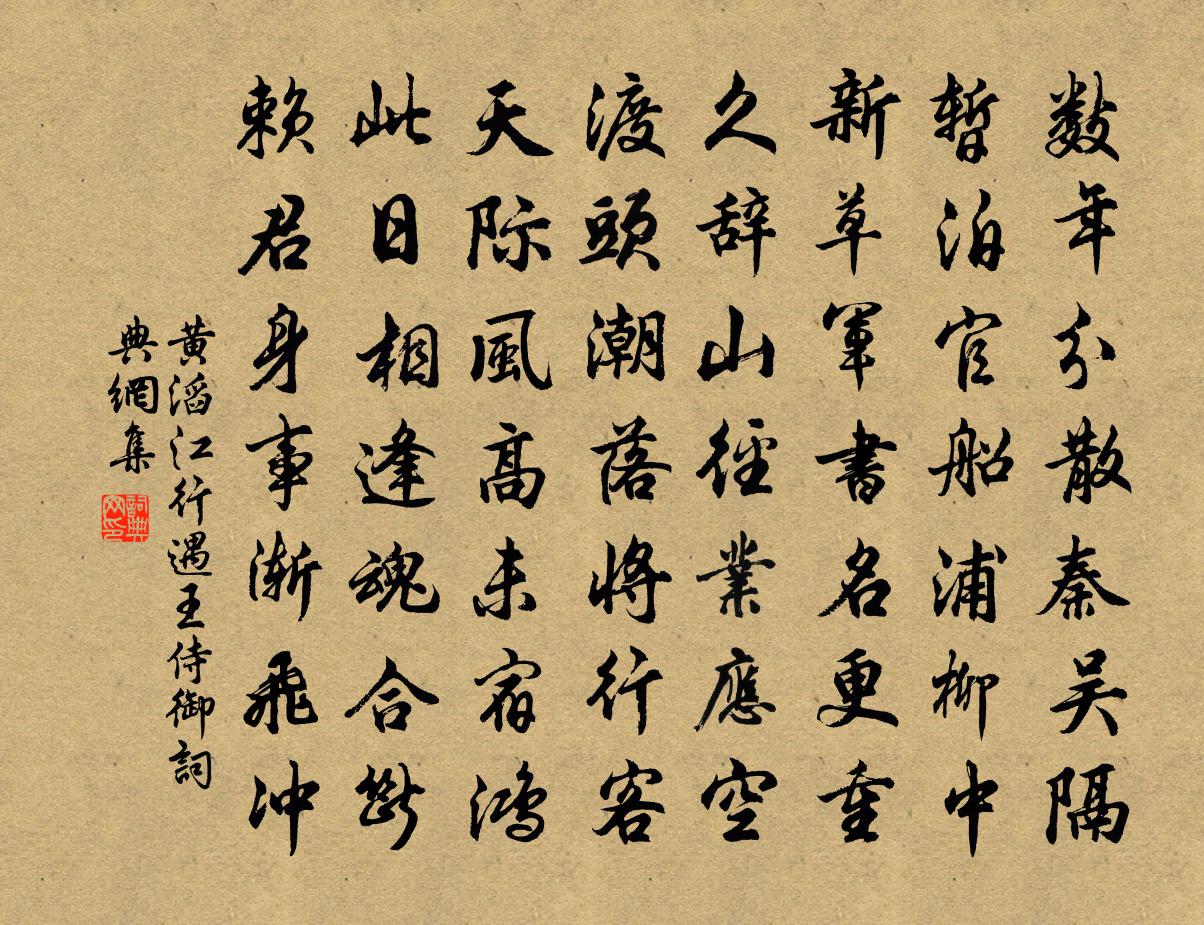 數年分散秦吳隔
暫泊官船浦柳中
新草軍書名更重
久辞山徑業應空
渡頭潮落將行客
天际風高未宿鴻
此日相逢魂合斷
賴君身事漸飛冲
黃滔江行遇王侍御詞
典網集
詞典
網印